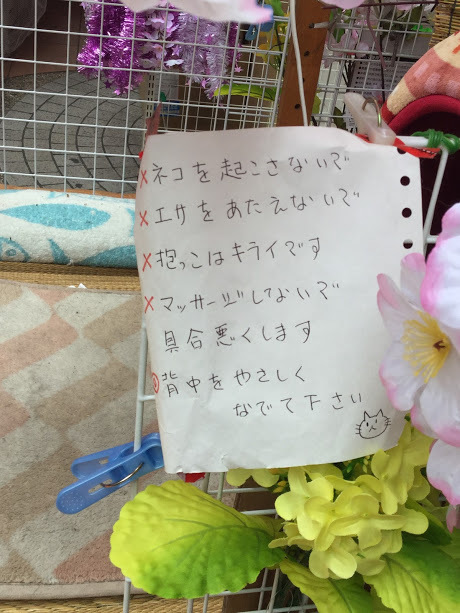 ×ネコを起こさないで
×エサをあたえないで
×抱っこはキライです
×マッサージしてないで
具合悪くします
○背中をやさしく
なでて下さい